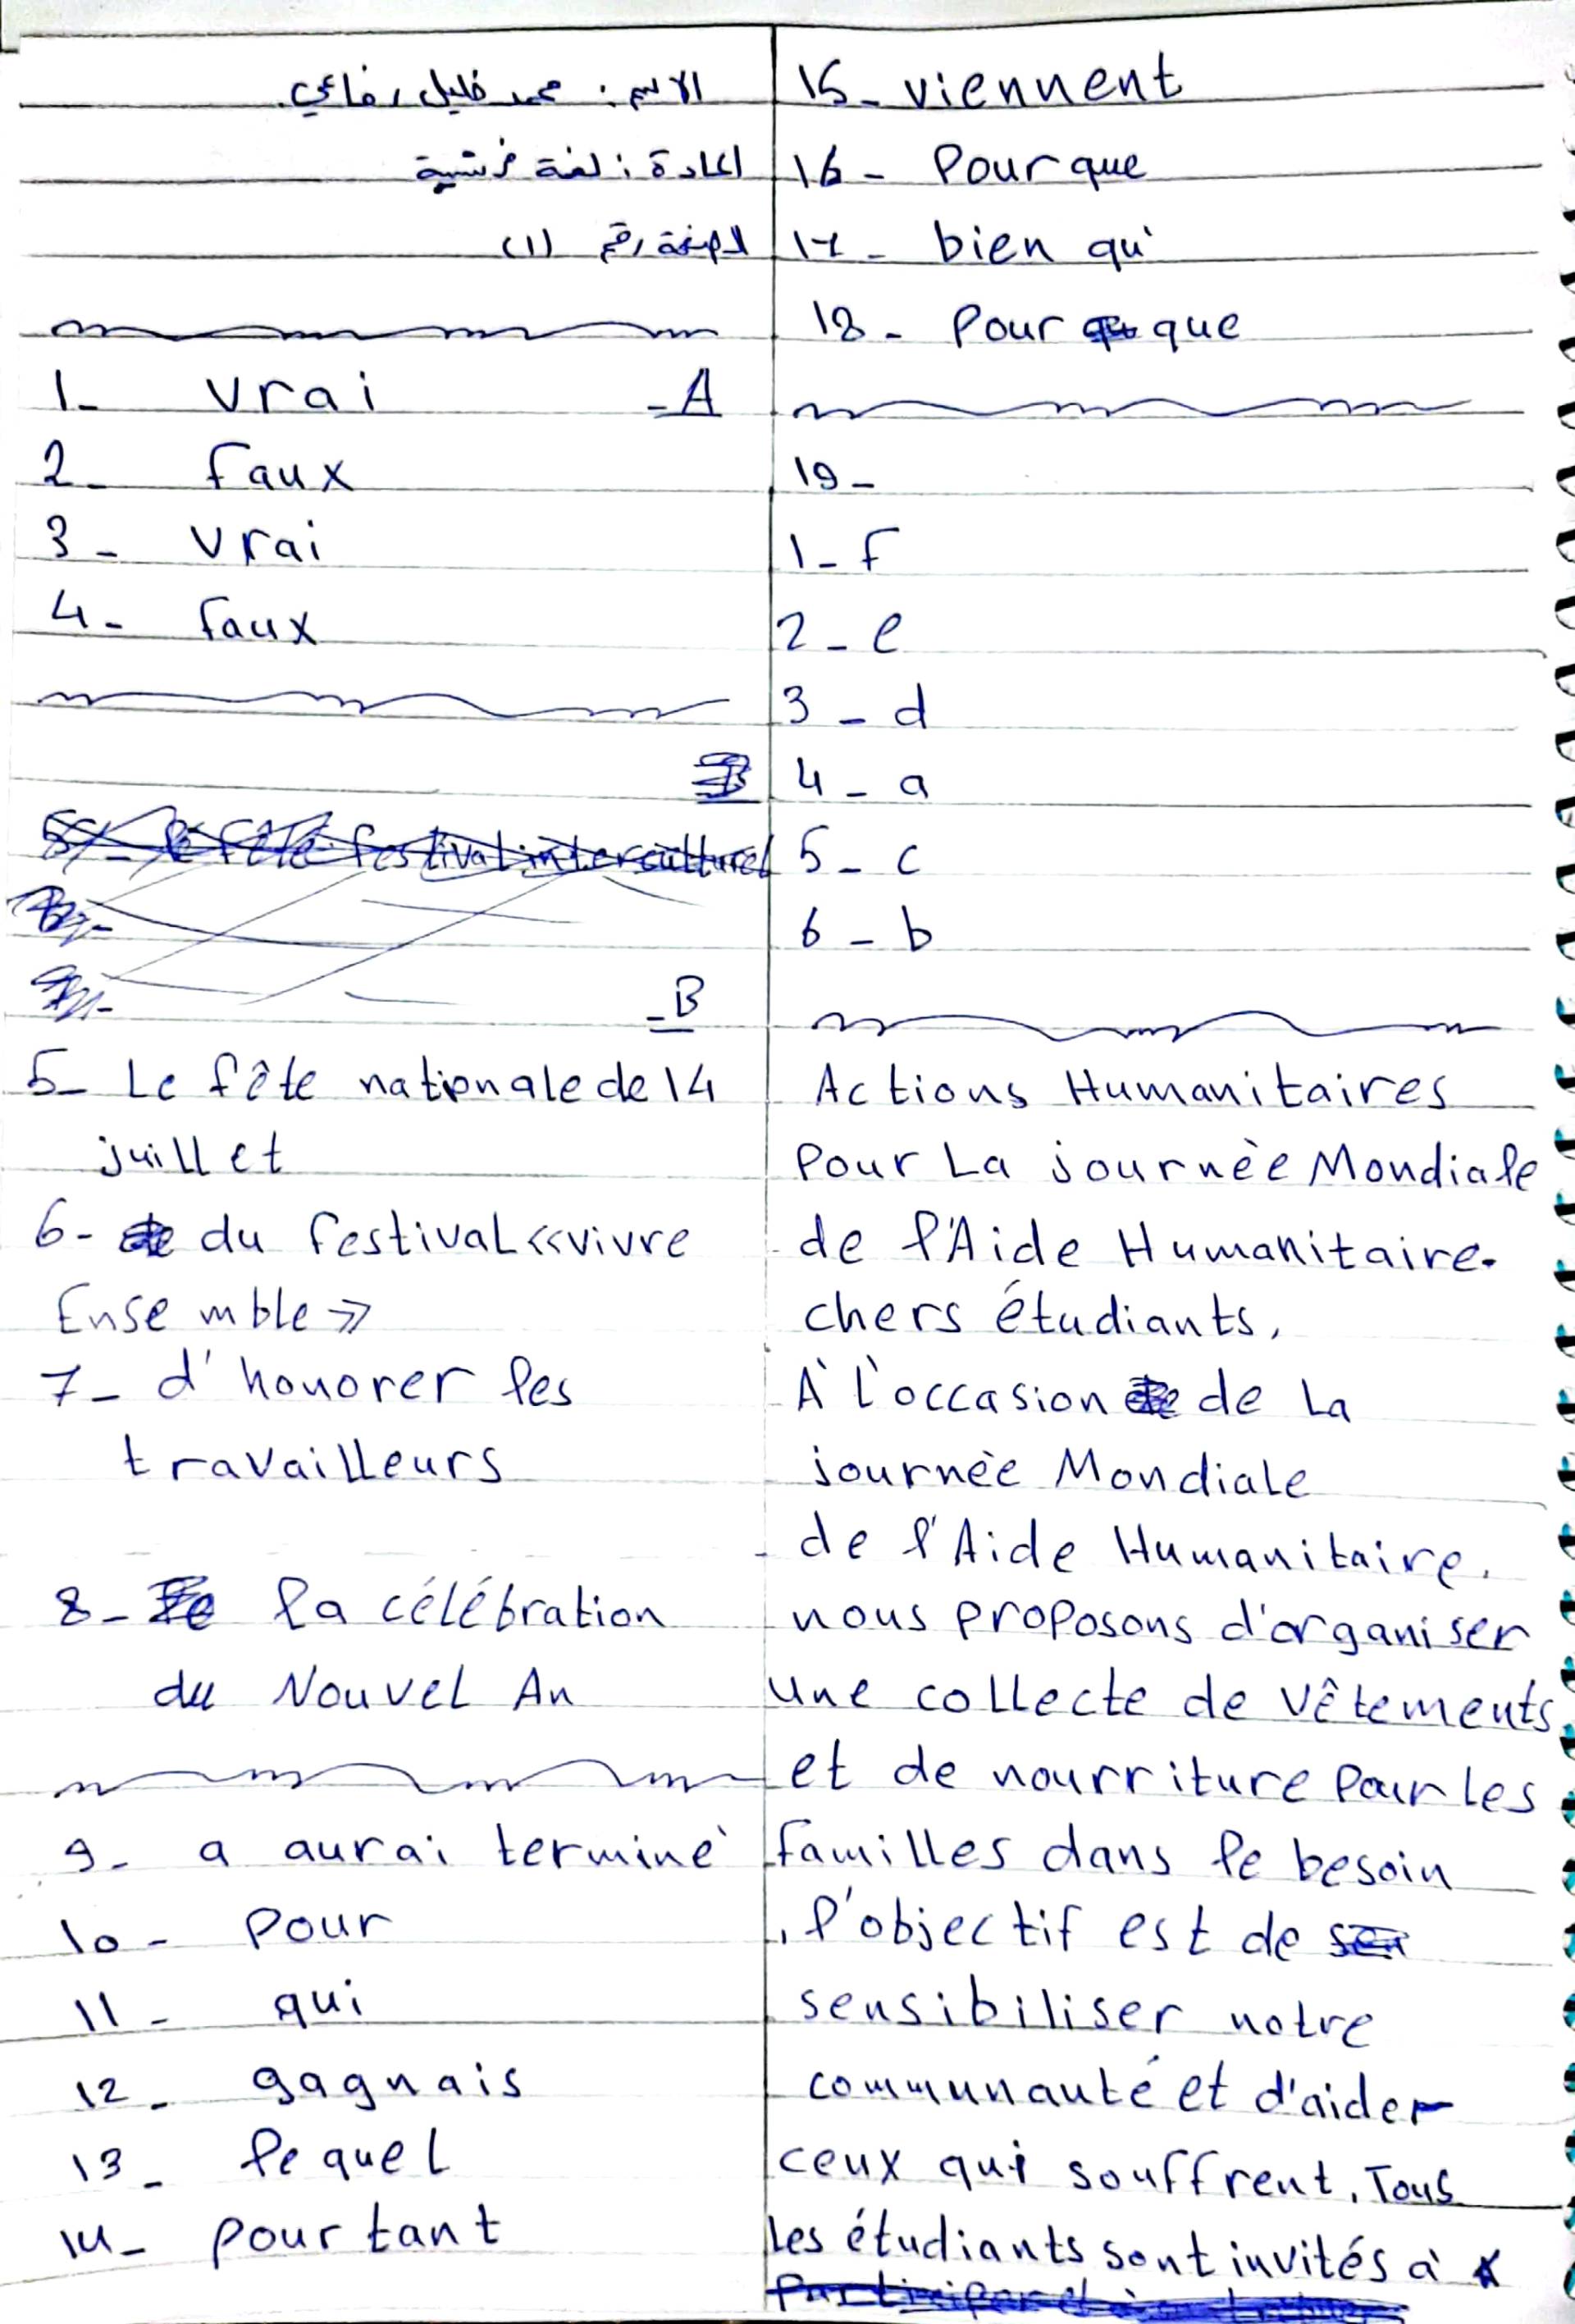 الاسم : محمد خليل رفاعي.
المادة : لغة فرنسية
الصفحة رقم (1)
1- vrai -A
2- faux
3- vrai
4- faux
B
5- Le fête festival interculturel
-B
5- Le fête nationale de 14
juillet
6- du festival <<vivre
Ensemble>>
7- d'honorer les
travailleurs
8- la célébration
du Nouvel An
9- a aurai terminè
10- pour
11- qui
12- gagnais
13- lequel
14- pourtant
15- viennent
16- Pour que
17- bien qu'
18- Pour que
19-
1- f
2- e
3- d
4- a
5- c
6- b
Actions Humanitaires
Pour La journèe Mondiale
de l'Aide Humanitaire.
chers étudiants,
À l'occasion de La
journèe Mondiale
de l'Aide Humanitaire,
nous proposons d'organiser
une collecte de vêtements
et de nourriture pour les
familles dans le besoin
, l'objectif est de
sensibiliser notre
communauté et d'aider
ceux qui souffrent. Tous
Les étudiants sont invités à